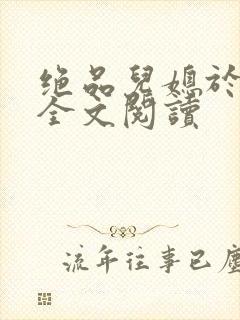 绝品兒媳於
全文閱讀
流年往事已塵